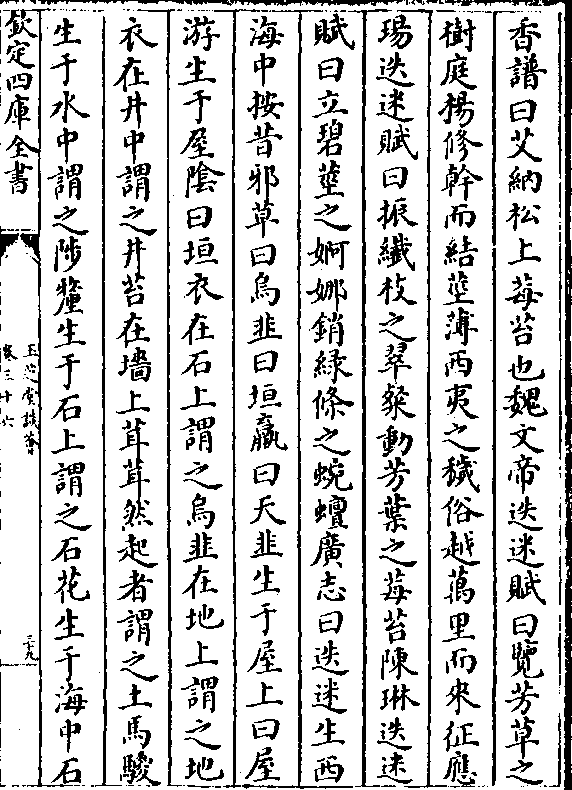 香譜曰艾納松上莓苔也魏文帝迭迷賦曰覽芳草之
樹庭揚修幹而結莖薄西夷之穢俗越萬里而來征應
瑒迭迷賦曰振纎枝之翠粲動芳葉之莓苔陳琳迭迷
賦曰立碧莖之婀娜銷緑條之蜿蟺廣志曰迭迷生西
海中按昔邪草曰烏韭曰垣蠃曰天韭生于屋上曰屋
游生于屋陰曰垣衣在石上謂之烏韭在地上謂之地
衣在井中謂之井苔在墻上茸茸然起者謂之土馬騣
生于水中謂之陟釐生于石上謂之石花生于海中石
欽定四庫全書
玉芝堂談薈
卷三十六
三九